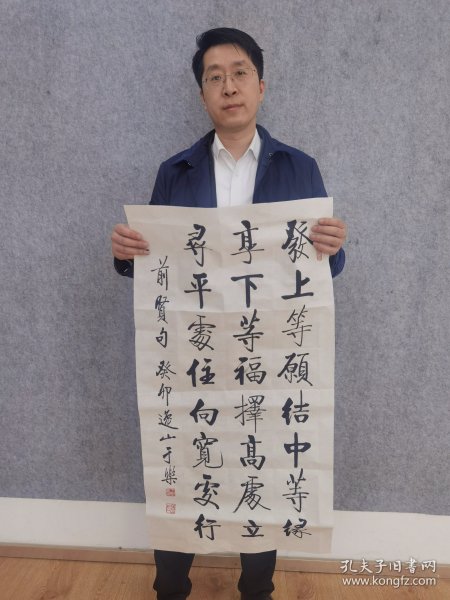 發上等願结中等缘
享下等福擇高處立
尋平處住向寬處行
前賢句 癸卯逸山于樂
孔夫子旧书网
www.kongfz.com